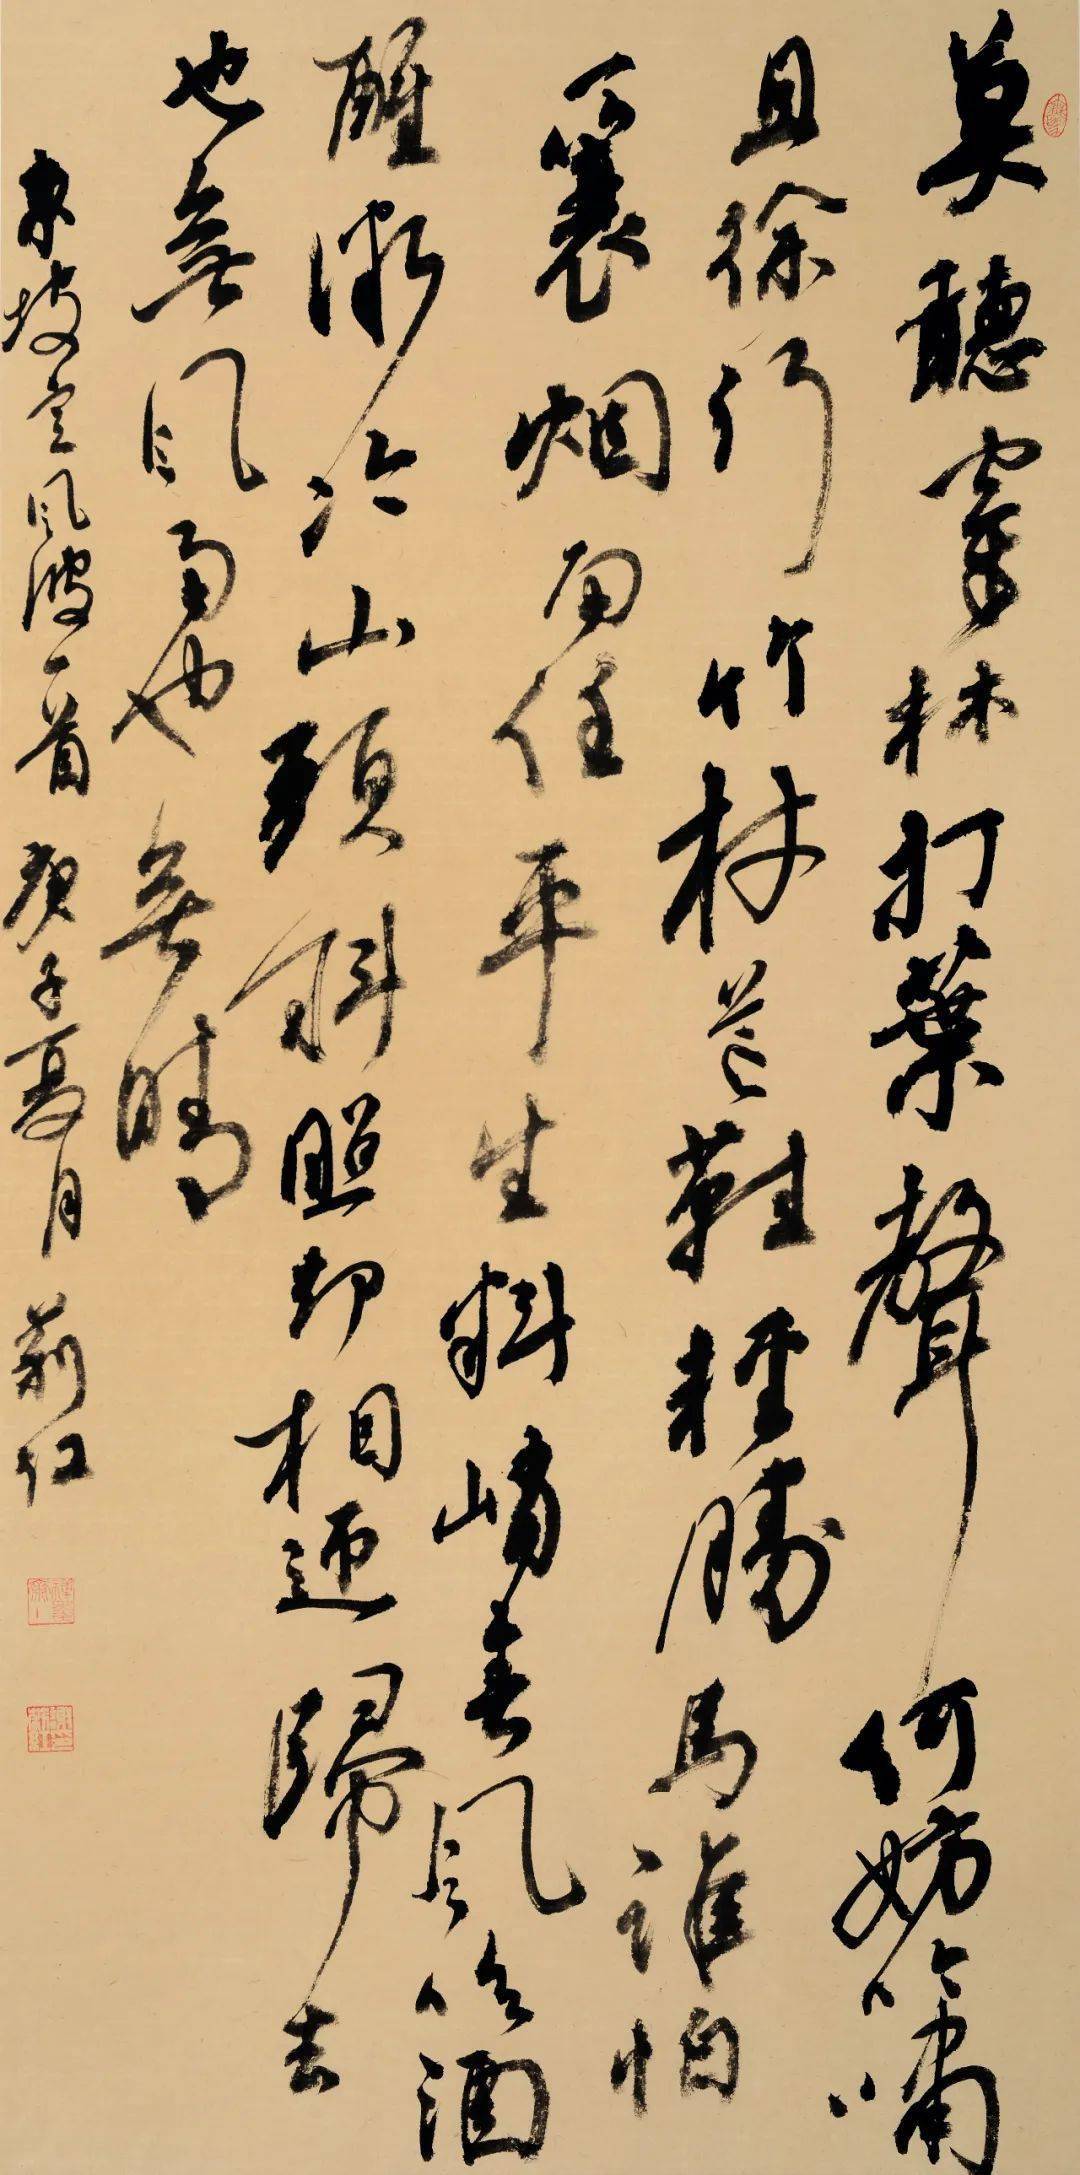 莫聽穿林打葉聲何妨吟嘯
且徐行竹杖芒鞋輕勝馬誰怕
一蓑烟雨任平生料峭春風吹酒
醒微冷山頭斜照却相迎歸去
也無風雨也無晴
東坡定風波一首 庚子夏月